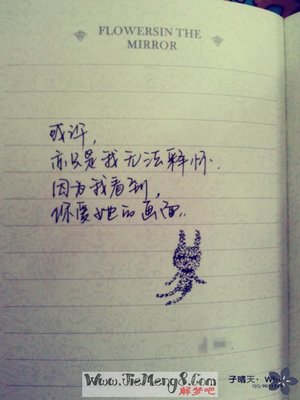 FLOWERSIN THE
MIRROR
或许，
亦只是我无法释怀.
因为我看到，
你爱她的画面..
Www.JieMeng8.Com
解梦吧
子晴天·